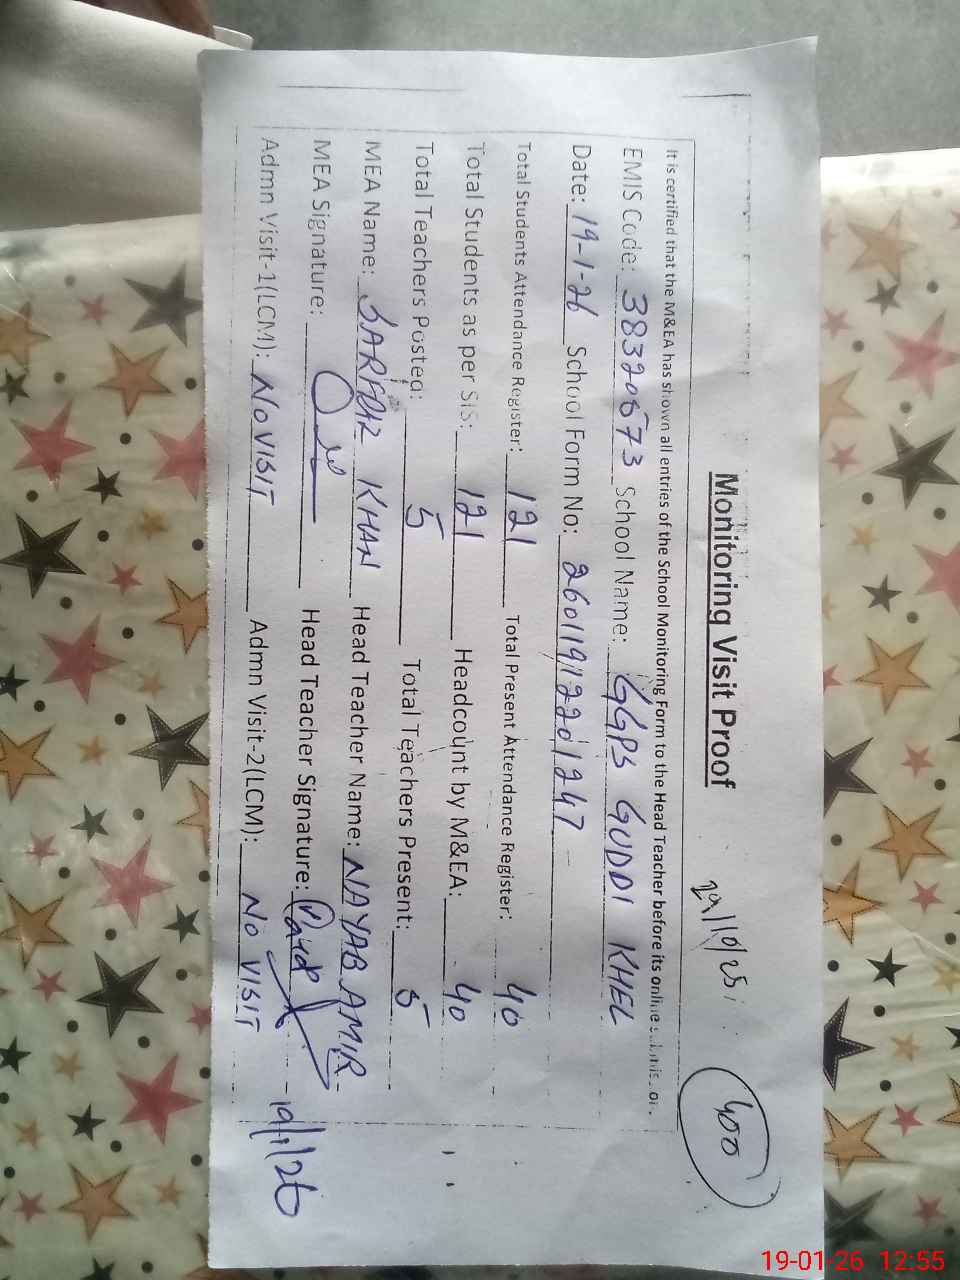 Monitoring Visit Proof
29/10/25
400
It is certified that the M&EA has shown all entries of the School Monitoring Form to the Head Teacher before its online submission.
EMIS Code: 38320673 School Name: GGPS GUDDI KHEL
Date: 19-1-26 School Form No: 26011912201247
Total Students Attendance Register: 121 Total Present Attendance Register: 40
Total Students as per SIS: 121 Headcount by M&EA: 40
Total Teachers Posted: 5 Total Teachers Present: 5
MEA Name: SARDAR KHAN Head Teacher Name: NAYAB AMIR
MEA Signature: Head Teacher Signature: 19/1/26
Admn Visit-1(LCM): NO VISIT Admn Visit-2(LCM): NO VISIT
19-01-26 12:55